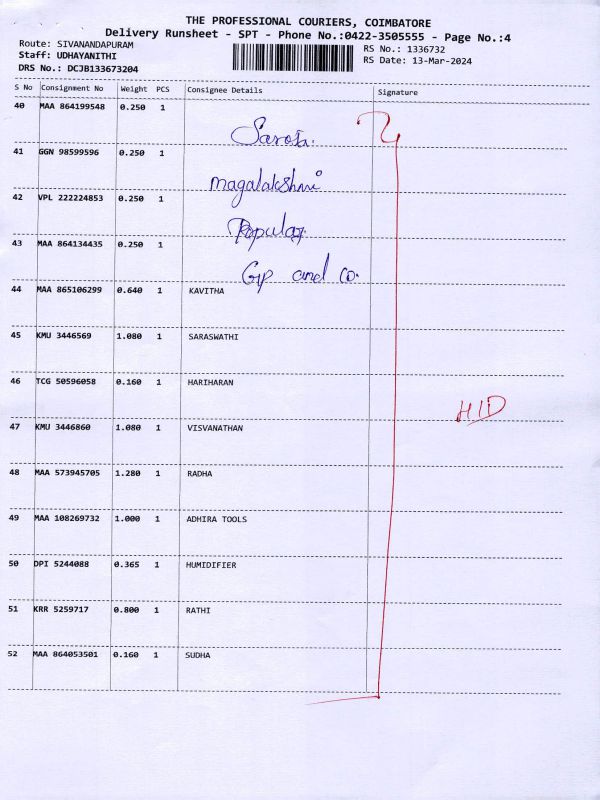 THE PROFESSIONAL COURIERS, COIMBATORE
Delivery Runsheet - SPT - Phone No.:0422-3505555 - Page No.:4
Route: SIVANANDAPURAM
RS No.: 1336732
Staff: UDHAYANITHI
RS Date: 13-Mar-2024
DRS No.: DCJB133673204
S No Consignment No Weight PCS Consignee Details Signature
40 MAA 864199548 0.250 1
41 GGN 98599596 0.250 1
magalakshmi
42 VPL 222224853 0.250 1
Popular
43 MAA 864134435 0.250 1
Gp and co.
44 MAA 865106299 0.640 1 KAVITHA
45 KMU 3446569 1.080 1 SARASWATHI
46 TCG 50596058 0.160 1 HARIHARAN
HID
47 KMU 3446860 1.080 1 VISVANATHAN
48 MAA 573945705 1.280 1 RADHA
49 MAA 108269732 1.000 1 ADHIRA TOOLS
50 DPI 5244088 0.365 1 HUMIDIFIER
51 KRR 5259717 0.800 1 RATHI
52 MAA 864053501 0.160 1 SUDHA